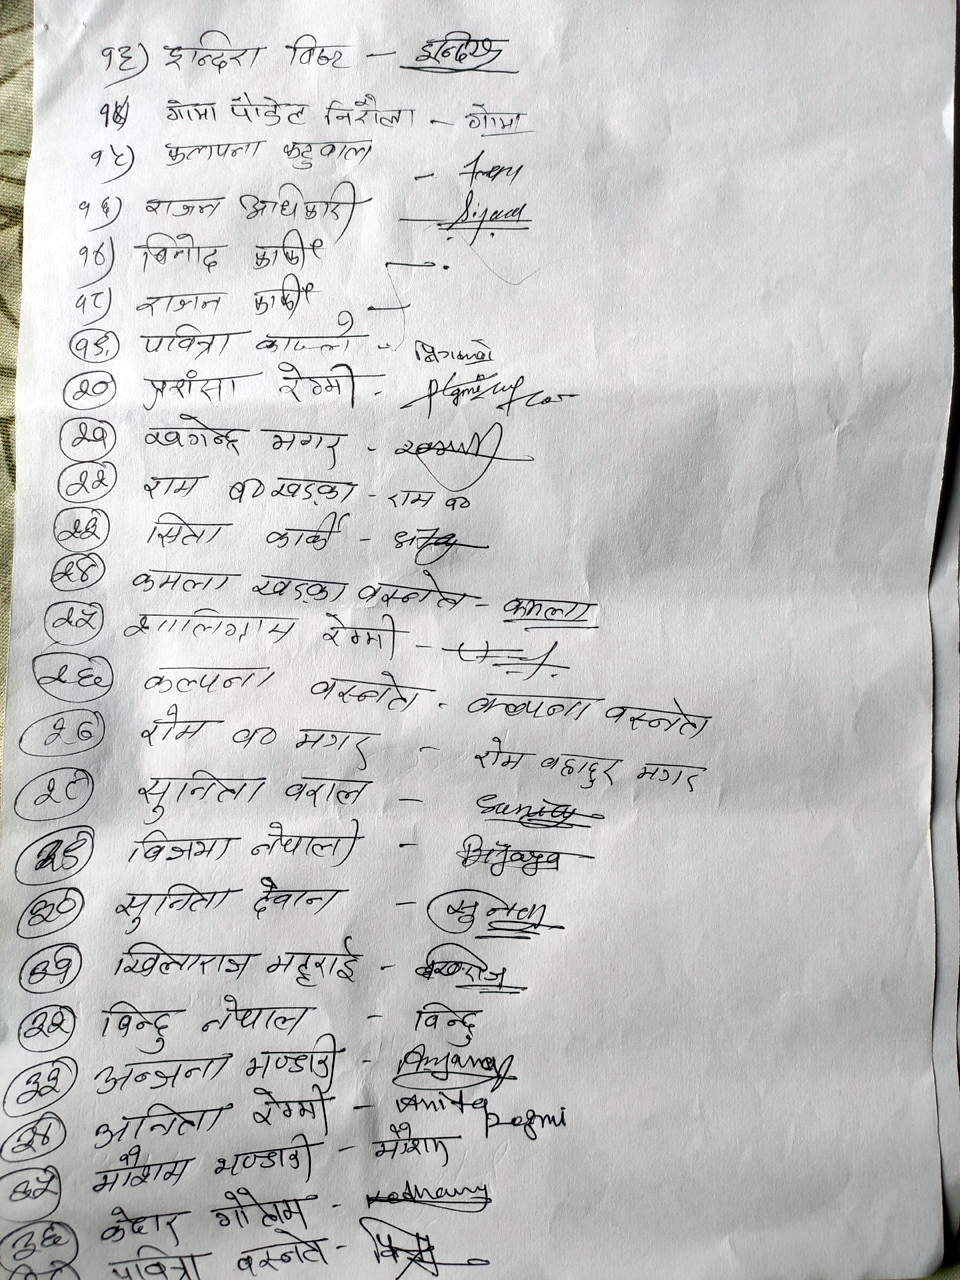 १३) इन्दिरा विष्ट - इन्दिरा
१४) गोमा पौडेल निरौला - गोमा
१५) कल्पना कटुवाल -
१६) राजन अधिकारी -
१७) बिनोद कार्की -
१८) राजन कार्की -
१९. पवित्रा काफ्ले -
२० प्रशंसा रेग्मी -
२१ खगेन्द्र मगर -
२२ राम ब० खड्का - राम ब०
२३ सिता कार्की -
२४ कमला खड्का वस्नेत - कमला
२५ शालिग्राम रेग्मी -
२६ कल्पना वस्नेत - कल्पना वस्नेत
२७ रोम ब० मगर - रोम बहादुर मगर
२८ सुनिता वराल - Sunita
२९ विजया नेपाली - Bijaya
३० सुनिता देवान - सुनिता
३१ खिलाराज भट्टराई -
३२ विन्दु नेपाल - विन्दु
३३ अन्जना भण्डारी - Anjana
३४ अनिता रेग्मी - Anita Regmi
३५ मौशम भण्डारी - मौशम
३६ केदार गौतम -
पवित्रा वस्नेत -